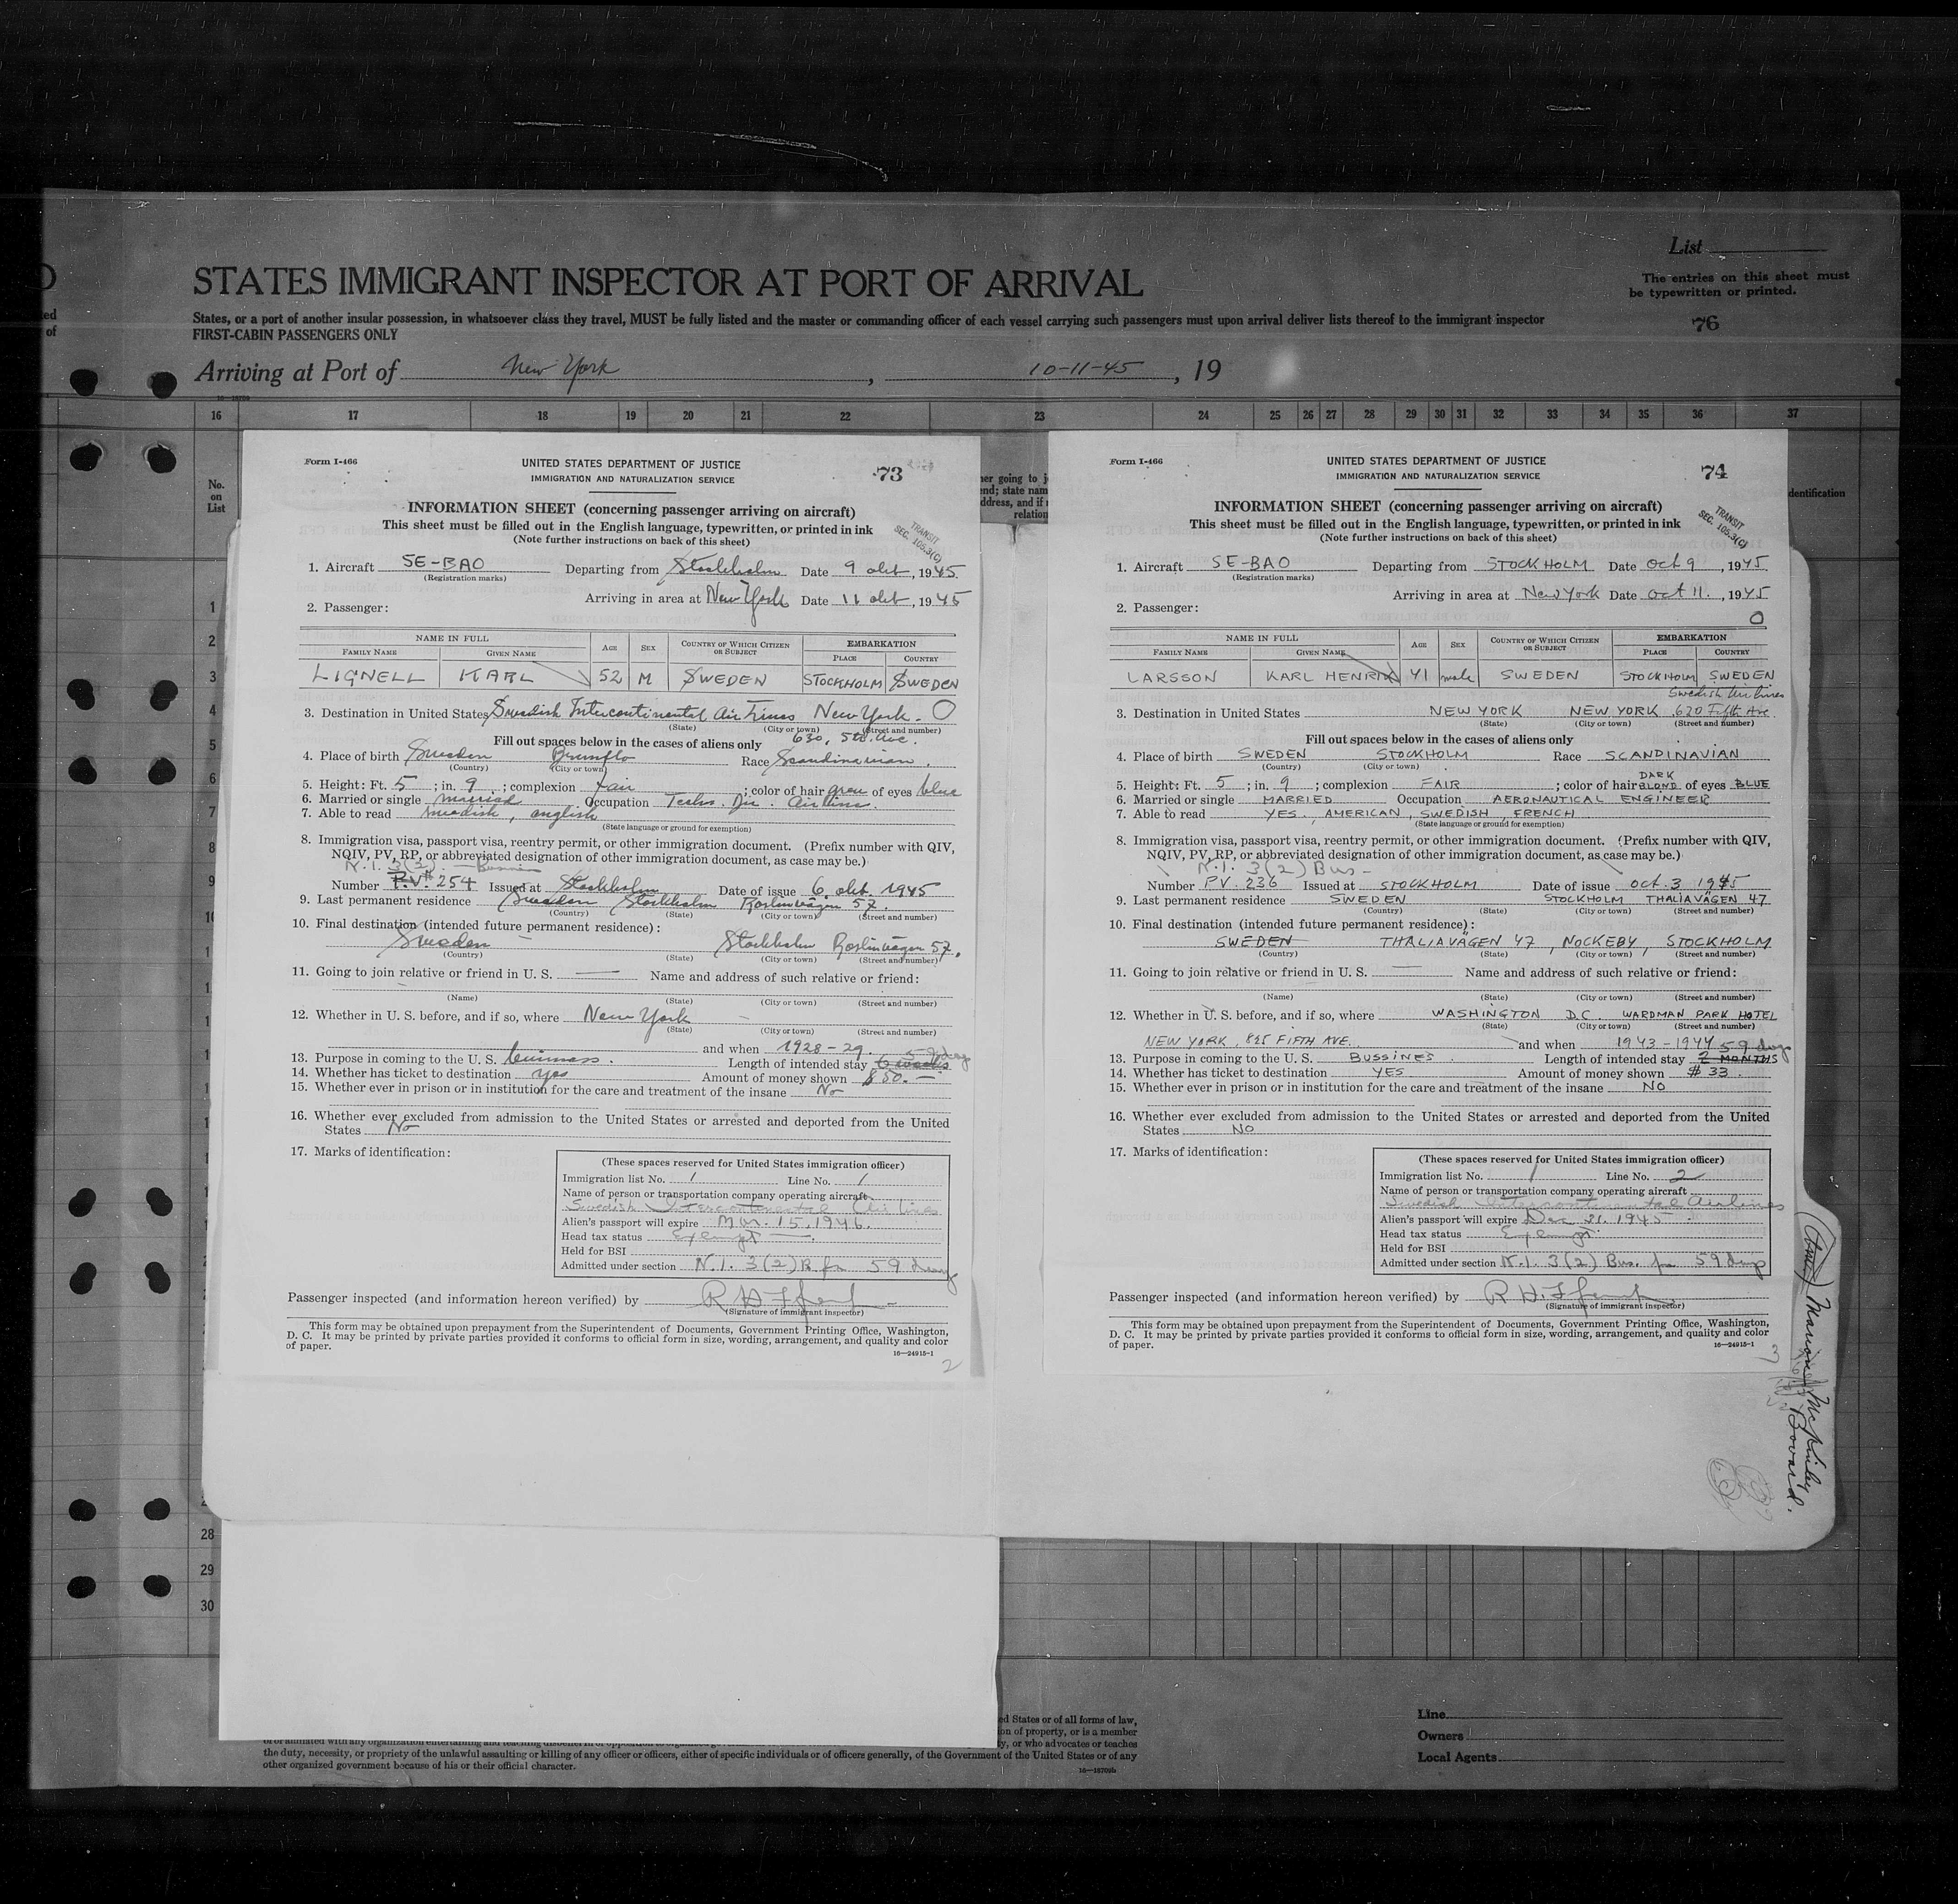 List
STATES IMMIGRANT INSPECTOR AT PORT OF ARRIVAL
The entries on this sheet must
be typewritten or printed.
States, or a port of another insular possession, in whatsoever class they travel, MUST be fully listed and the master or commanding officer of each vessel carrying such passengers must upon arrival deliver lists thereof to the immigrant inspector
FIRST-CABIN PASSENGERS ONLY
76
Arriving at Port of New York, 10-11-45, 19
16 17 18 19 20 21 22 23 24 25 26 27 28 29 30 31 32 33 34 35 36 37
No.
on
List
Form I-466
UNITED STATES DEPARTMENT OF JUSTICE
IMMIGRATION AND NATURALIZATION SERVICE
73
INFORMATION SHEET (concerning passenger arriving on aircraft)
This sheet must be filled out in the English language, typewritten, or printed in ink
(Note further instructions on back of this sheet)
TRANSIT
SEC. 105.3(C)
1. Aircraft SE-BAO Departing from Stockholm Date 9 okt, 1945
(Registration marks)
Arriving in area at New York Date 11 okt, 1945
2. Passenger:
NAME IN FULL AGE SEX COUNTRY OF WHICH CITIZEN OR SUBJECT EMBARKATION
FAMILY NAME GIVEN NAME PLACE COUNTRY
LIGNELL KARL 52 M SWEDEN STOCKHOLM SWEDEN
3. Destination in United States Swedish Intercontinental Air Lines New York. O
(State) (City or town) (Street and number)
630, 5th. Ave.
Fill out spaces below in the cases of aliens only
4. Place of birth Sweden Brunflo Race Scandinavian.
(Country) (City or town)
5. Height: Ft. 5; in. 9; complexion fair; color of hair grey of eyes blue
6. Married or single married Occupation Techn. Dir. Airline.
7. Able to read swedish, english
(State language or ground for exemption)
8. Immigration visa, passport visa, reentry permit, or other immigration document. (Prefix number with QIV,
NQIV, PV, RP, or abbreviated designation of other immigration document, as case may be.)
N.I. 3(2) - Business
Number P.V.# 254 Issued at Stockholm Date of issue 6 okt. 1945
9. Last permanent residence Sweden Stockholm Roslinvägen 57.
(Country) (State) (City or town) (Street and number)
10. Final destination (intended future permanent residence):
Sweden Stockholm Roslinvägen 57.
(Country) (State) (City or town) (Street and number)
11. Going to join relative or friend in U. S. — Name and address of such relative or friend:
(Name) (State) (City or town) (Street and number)
12. Whether in U. S. before, and if so, where New York
(State) (City or town) (Street and number)
and when 1928-29.
59 days
13. Purpose in coming to the U. S. business. Length of intended stay 6 weeks
14. Whether has ticket to destination yes Amount of money shown $ 50.—
15. Whether ever in prison or in institution for the care and treatment of the insane No
16. Whether ever excluded from admission to the United States or arrested and deported from the United
States No
17. Marks of identification:
(These spaces reserved for United States immigration officer)
Immigration list No. 1 Line No. 1
Name of person or transportation company operating aircraft
Swedish Intercontinental Air lines
Alien's passport will expire Mar. 15, 1946.
Head tax status Exempt
Held for BSI
Admitted under section N.I. 3(2) B. for 59 days
Passenger inspected (and information hereon verified) by
(Signature of immigrant inspector)
This form may be obtained upon prepayment from the Superintendent of Documents, Government Printing Office, Washington,
D. C. It may be printed by private parties provided it conforms to official form in size, wording, arrangement, and quality and color
of paper.
16—24915-1
2
Form I-466
UNITED STATES DEPARTMENT OF JUSTICE
IMMIGRATION AND NATURALIZATION SERVICE
74
INFORMATION SHEET (concerning passenger arriving on aircraft)
This sheet must be filled out in the English language, typewritten, or printed in ink
(Note further instructions on back of this sheet)
TRANSIT
SEC. 105.3(C)
1. Aircraft SE-BAO Departing from STOCKHOLM Date Oct 9, 1945.
(Registration marks)
Arriving in area at New York Date Oct 11., 1945
2. Passenger:
O
NAME IN FULL AGE SEX COUNTRY OF WHICH CITIZEN OR SUBJECT EMBARKATION
FAMILY NAME GIVEN NAME PLACE COUNTRY
LARSSON KARL HENRIK 41 male SWEDEN STOCKHOLM SWEDEN
Swedish Airlines
3. Destination in United States NEW YORK NEW YORK 630 Fifth Ave
(State) (City or town) (Street and number)
Fill out spaces below in the cases of aliens only
4. Place of birth SWEDEN STOCKHOLM Race SCANDINAVIAN
(Country) (City or town)
DARK
5. Height: Ft. 5; in. 9; complexion FAIR; color of hair BLOND of eyes BLUE
6. Married or single MARRIED Occupation AERONAUTICAL ENGINEER
7. Able to read YES, AMERICAN, SWEDISH, FRENCH
(State language or ground for exemption)
8. Immigration visa, passport visa, reentry permit, or other immigration document. (Prefix number with QIV,
NQIV, PV, RP, or abbreviated designation of other immigration document, as case may be.)
N.I. 3(2) Bus-
Number PV. 236 Issued at STOCKHOLM Date of issue Oct. 3 1945
9. Last permanent residence SWEDEN STOCKHOLM THALIAVÄGEN 47
(Country) (State) (City or town) (Street and number)
10. Final destination (intended future permanent residence):
SWEDEN THALIAVÄGEN 47, NOCKEBY, STOCKHOLM
(Country) (State) (City or town) (Street and number)
11. Going to join relative or friend in U. S. — Name and address of such relative or friend:
(Name) (State) (City or town) (Street and number)
12. Whether in U. S. before, and if so, where WASHINGTON D.C. WARDMAN PARK HOTEL
(State) (City or town) (Street and number)
NEW YORK, 825 FIFTH AVE. and when 1943-1944
59 days
13. Purpose in coming to the U. S. BUSSINES. Length of intended stay 2 MONTHS
14. Whether has ticket to destination YES Amount of money shown $ 33.
15. Whether ever in prison or in institution for the care and treatment of the insane NO
16. Whether ever excluded from admission to the United States or arrested and deported from the United
States NO
17. Marks of identification:
(These spaces reserved for United States immigration officer)
Immigration list No. 1 Line No. 2
Name of person or transportation company operating aircraft
Swedish Intercontinental Airlines
Alien's passport will expire Dec 21. 1945
Head tax status Exempt.
Held for BSI
Admitted under section N.I. 3(2) Bus. for 59 days
Passenger inspected (and information hereon verified) by
(Signature of immigrant inspector)
This form may be obtained upon prepayment from the Superintendent of Documents, Government Printing Office, Washington,
D. C. It may be printed by private parties provided it conforms to official form in size, wording, arrangement, and quality and color
of paper.
16—24915-1
3
28
29
30
the duty, necessity, or propriety of the unlawful assaulting or killing of any officer or officers, either of specific individuals or of officers generally, of the Government of the United States or of any
other organized government because of his or their official character.
16—18709b
Line
Owners
Local Agents